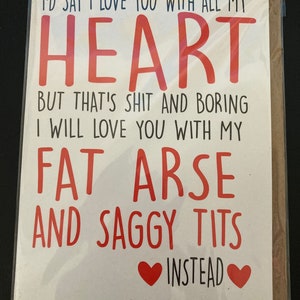 I'D SAY I LOVE YOU WITH ALL MY
HEART
BUT THAT'S SHIT AND BORING
I WILL LOVE YOU WITH MY
FAT ARSE
AND SAGGY TITS
INSTEAD